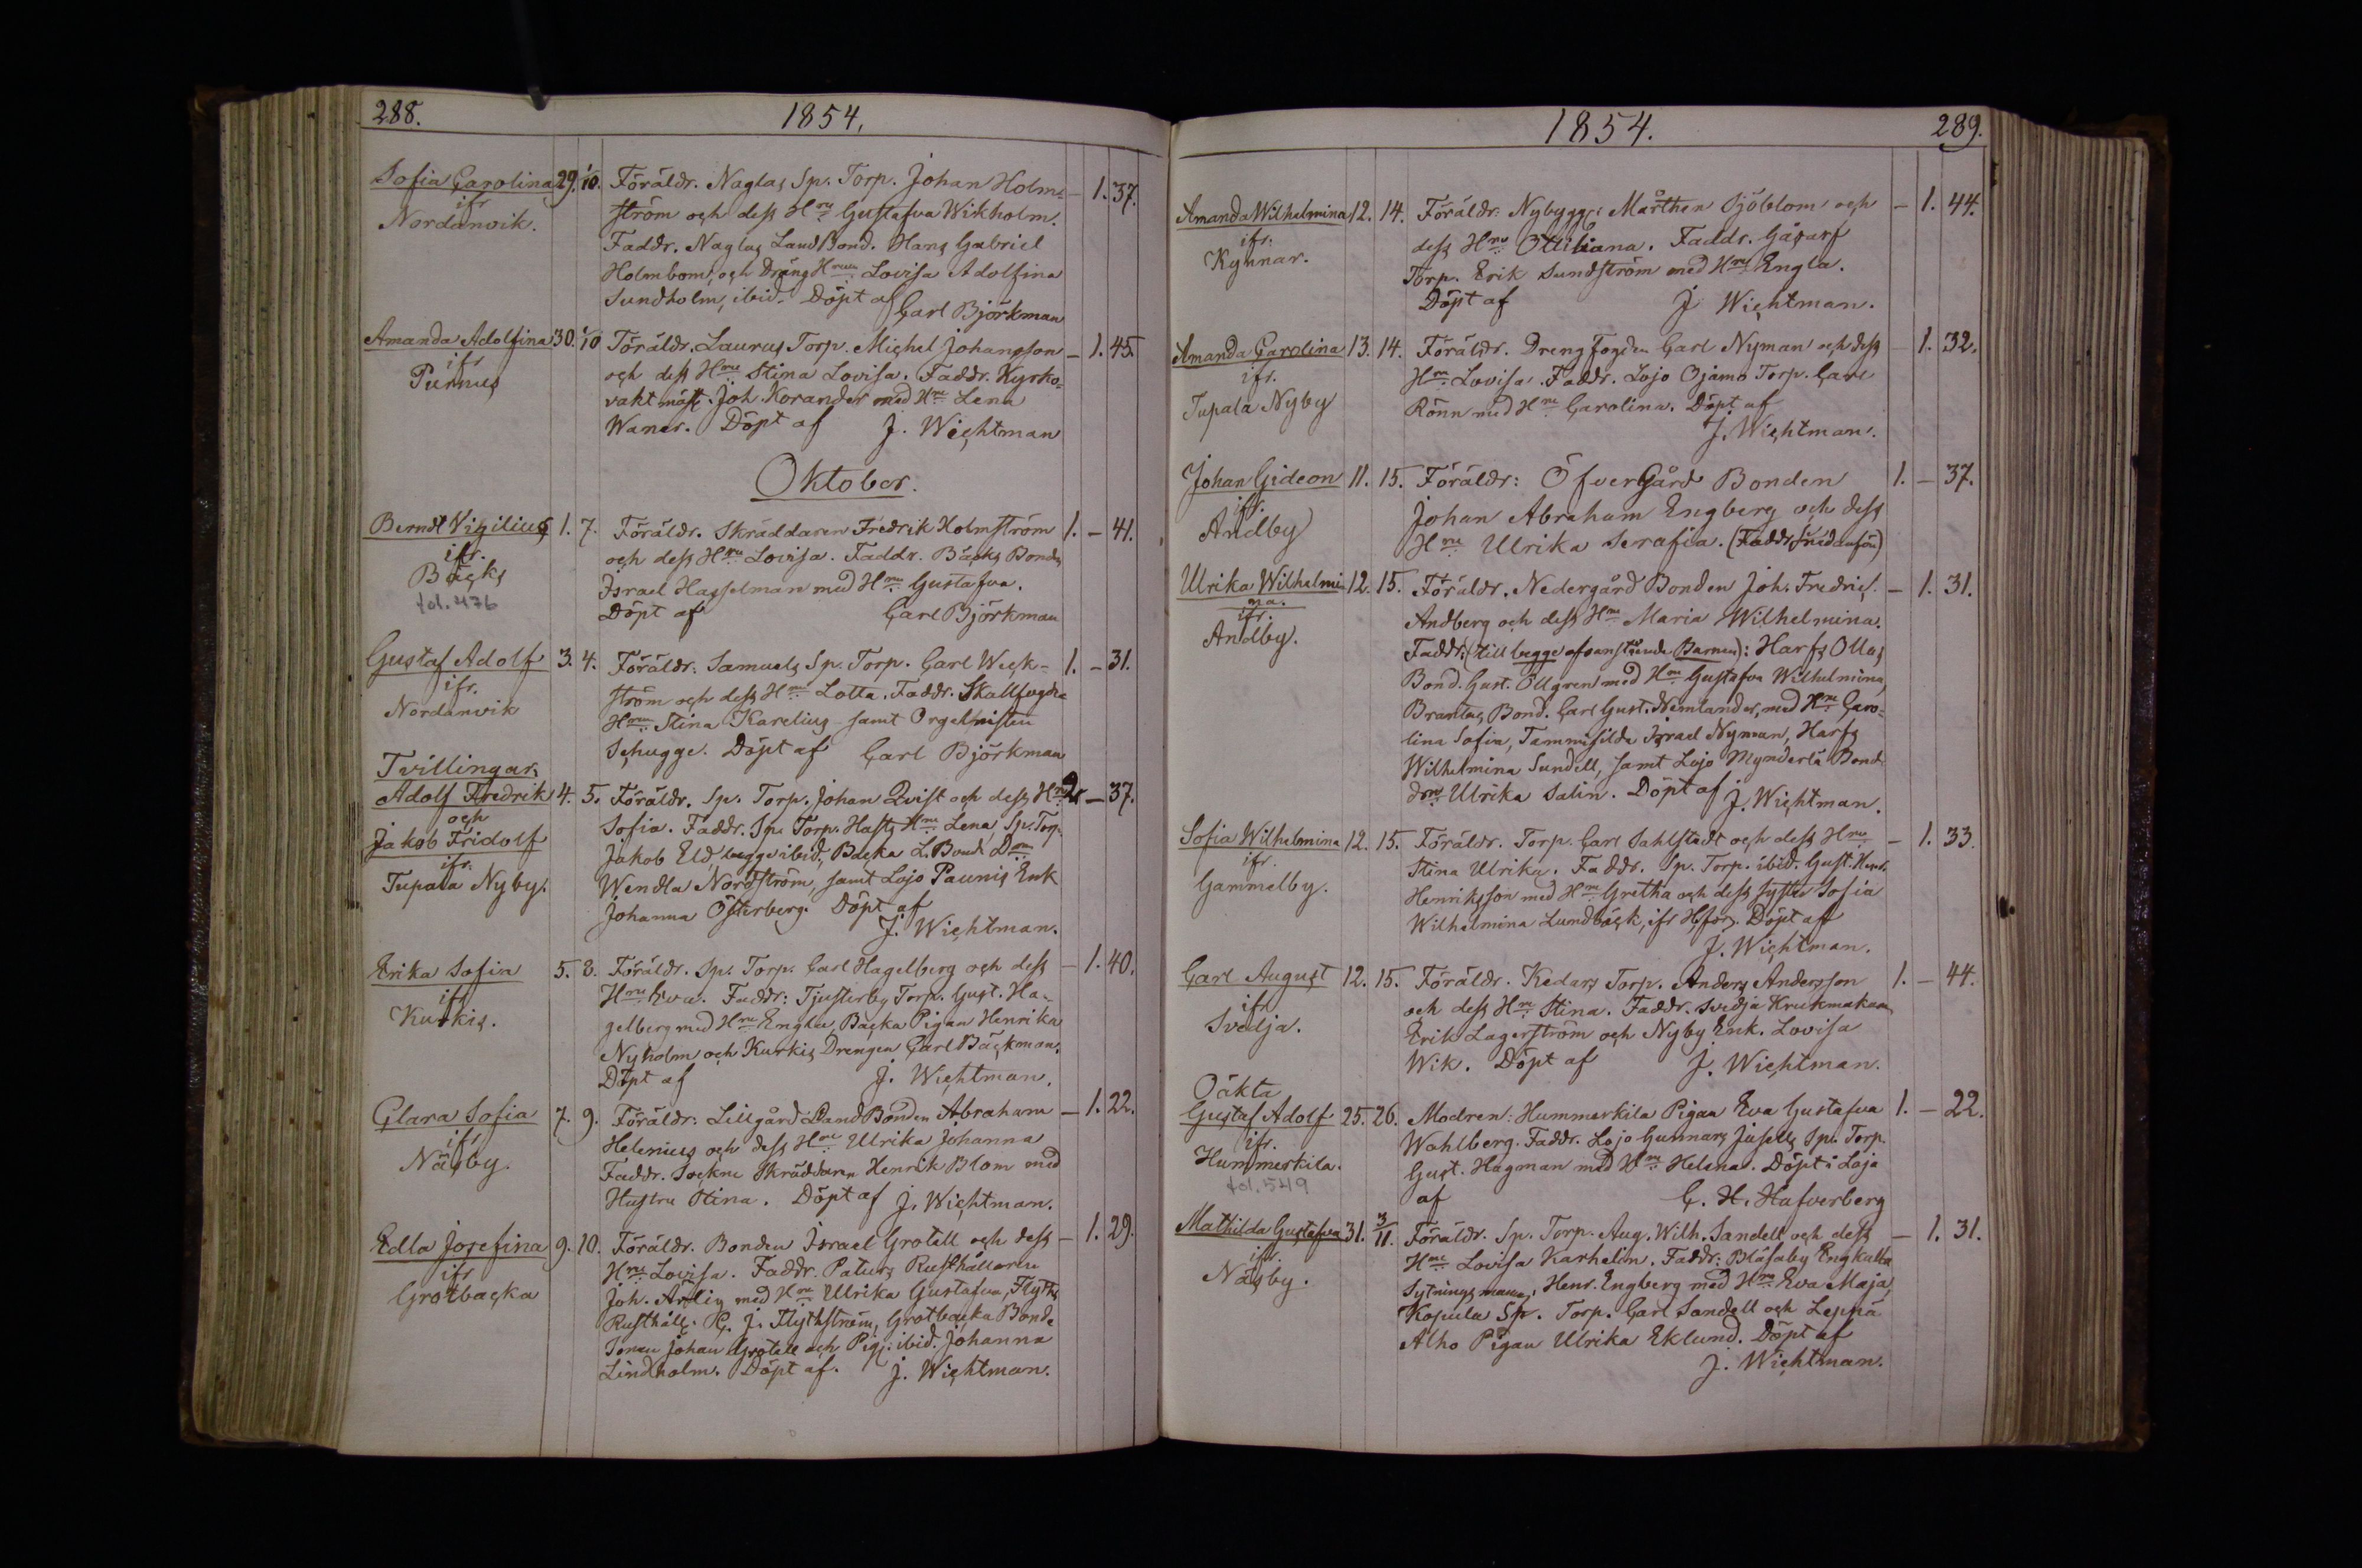 288.
1854.
Sofia Carolina 29. 1/10. Föräldr. Naglas Sp. Torp. Johan Holm= — 1. 37.
ifr
Nordanvik.
ström och dess Hru Gustafva Wikholm.
Faddr. Naglas LandBond. Hans Gabriel
Holmbom, och Dräng Hrun Lovisa Adolfina
Sundholm, ibid. Döpt af Carl Björkman
Amanda Adolfina 30. 1/10 Föräldr. Laurus Torp. Michel Johansson — 1. 45.
ifr
Purnus
och dess Hru Stina Lovisa. Faddr. Kyrko=
vaktmäst. Joh. Korander med Hru Lena
Waner. Döpt af J. Wichtman
Oktober.
Berndt Vigilius 1. 7. Föräldr. Skräddaren Fredrik Holmström 1. — 41.
ifr.
Bäcks
fol. 476
och dess Hru Lovisa. Faddr. Bäcks Bonden
Israel Hasselman med Hru Gustafva.
Döpt af Carl Björkman
Gustaf Adolf 3. 4. Föräldr. Samuels Sp. Torp. Carl Weck= 1. — 31.
ifr.
Nordanvik
ström och dess Hru Lotta. Faddr. Skallfogde
Hrun Stina Karelius samt Orgelnisten
Schugge. Döpt af Carl Björkman
Tvillingar,
Adolf Fredrik 4. 5. Föräldr. Sp. Torp. Johan Qvist och dess Hru 2. — 37.
och
Jakob Fridolf
ifr.
Tupala Nyby.
Sofia. Faddr. Sp. Torp. Hasts Hru Lena, Sp. Torp.
Jakob Eld, begge ibid, Backa L. Bond Dom
Wendla Nordström, samt Lojo Paunis Enk
Johanna Österberg. Döpt af
J. Wichtman.
Erika Sofia 5. 8. Föräldr. Sp. Torp. Carl Hagelberg och dess — 1. 40.
ifr
Kurkis.
Hru Eva. Faddr: Tjusterby Torp. Gust. Ha=
gelberg med Hru Engla, Backa Pigan Henrika
Nyholm och Kurkis Drengen Carl Bäckman.
Döpt af J. Wichtman.
Clara Sofia 7. 9. Föräldr: Lillgård LandBonden Abraham — 1. 22.
ifr
Näsby.
Helenius och dess Hru Ulrika Johanna
Faddr. Sockne Skräddaren Henrik Blom med
Hustru Stina. Döpt af J. Wichtman.
Edla Josefina 9. 10. Föräldr. Bonden Israel Grotell och dess — 1. 29.
ifr
Grotbacka
Hru Lovisa. Faddr. Paturs Rusthållaren
Joh. Arlin med Hru Ulrika Gustafva, Flyths
Rusthåll. C. J. Flythström, Grotbacka Bonde
Sonen Johan Grotell och Pig. ibid. Johanna
Lindholm. Döpt af. J. Wichtman.
1854.
289.
Amanda Wilhelmina 12. 14. Föräldr. Nybygg. Mårthen Sjöblom och — 1. 44.
ifr.
Kynnar.
dess Hru Ottiliana. Faddr. Gåsarf
Torp. Erik Sundström med Hru Engla.
Döpt af J. Wichtman.
Amanda Carolina 13. 14. Föräldr. Drengfogden Carl Nyman och dess — 1. 32.
ifr.
Tupala Nyby
Hru Lovisa. Faddr. Lojo Ojamo Torp. Carl
Rönn med Hru Carolina. Döpt af
J. Wichtman.
Johan Gideon 11. 15. Föräldr: ÖfverGård Bonden 1. — 37.
ifr.
Andby
Johan Abraham Engberg och dess
Hru Ulrika Serafia. (Faddr. nedanför)
Ulrika Wilhelmi= 12. 15. Föräldr. Nedergård Bonden Joh. Fredric — 1. 31.
na.
ifr.
Andby.
Andberg och dess Hru Maria Wilhelmina.
Faddr: (till begge ofvanstående Barnen): Harfs Ollas
Bond. Gust. Ollgren med Hru Gustafva Wilhelmina,
Brantas Bond. Carl Gust. Nemlander, med Hru Caro=
lina Sofia, Tammisilda Israel Nyman, Harfs
Wilhelmina Sundell, samt Lojo Mynderlä Bond.
drn Ulrika Salin. Döpt af J. Wichtman.
Sofia Wilhelmina 12. 15. Föräldr. Torp. Carl Sahlstedt och dess Hru — 1. 33.
ifr.
Gammelby.
Stina Ulrika. Faddr. Sp. Torp. ibid. Gust. Henr.
Henriksson med Hru Gretha och dess Syster Sofia
Wilhelmina Lundbäck, ifr Hfors. Döpt af
J. Wichtman.
Carl August 12. 15. Föräldr. Kedars Torp. Anders Andersson 1. — 44.
ifr
Svedja.
och dess Hru Stina. Faddr. Svedja Krukmakaren
Erik Lagerström och Nyby Enk. Lovisa
Wik. Döpt af J. Wichtman.
Oäkta
Gustaf Adolf 25. 26. Modren: Hummerkila Pigan Eva Gustafva 1. — 22.
ifr.
Hummerkila.
fol. 549
Wahlberg. Faddr. Lojo Gunnars Jusels Sp. Torp.
Gust. Hagman med Hru Helena. Döpt i Lojo
af C. H. Hafverberg
Mathilda Gustafva 31. 3/11. Föräldr. Sp. Torp. Aug. Wilh. Sandell och dess — 1. 31.
ifr.
Näsby.
Hru Lovisa Karhelin. Faddr: Blåsaby Engkulla
Sytningsman, Henr. Engberg med Hru Eva Maja,
Kopula Sp. Torp. Carl Sandell och Leppä
Alho Pigan Ulrika Eklund. Döpt af
J. Wichtman.